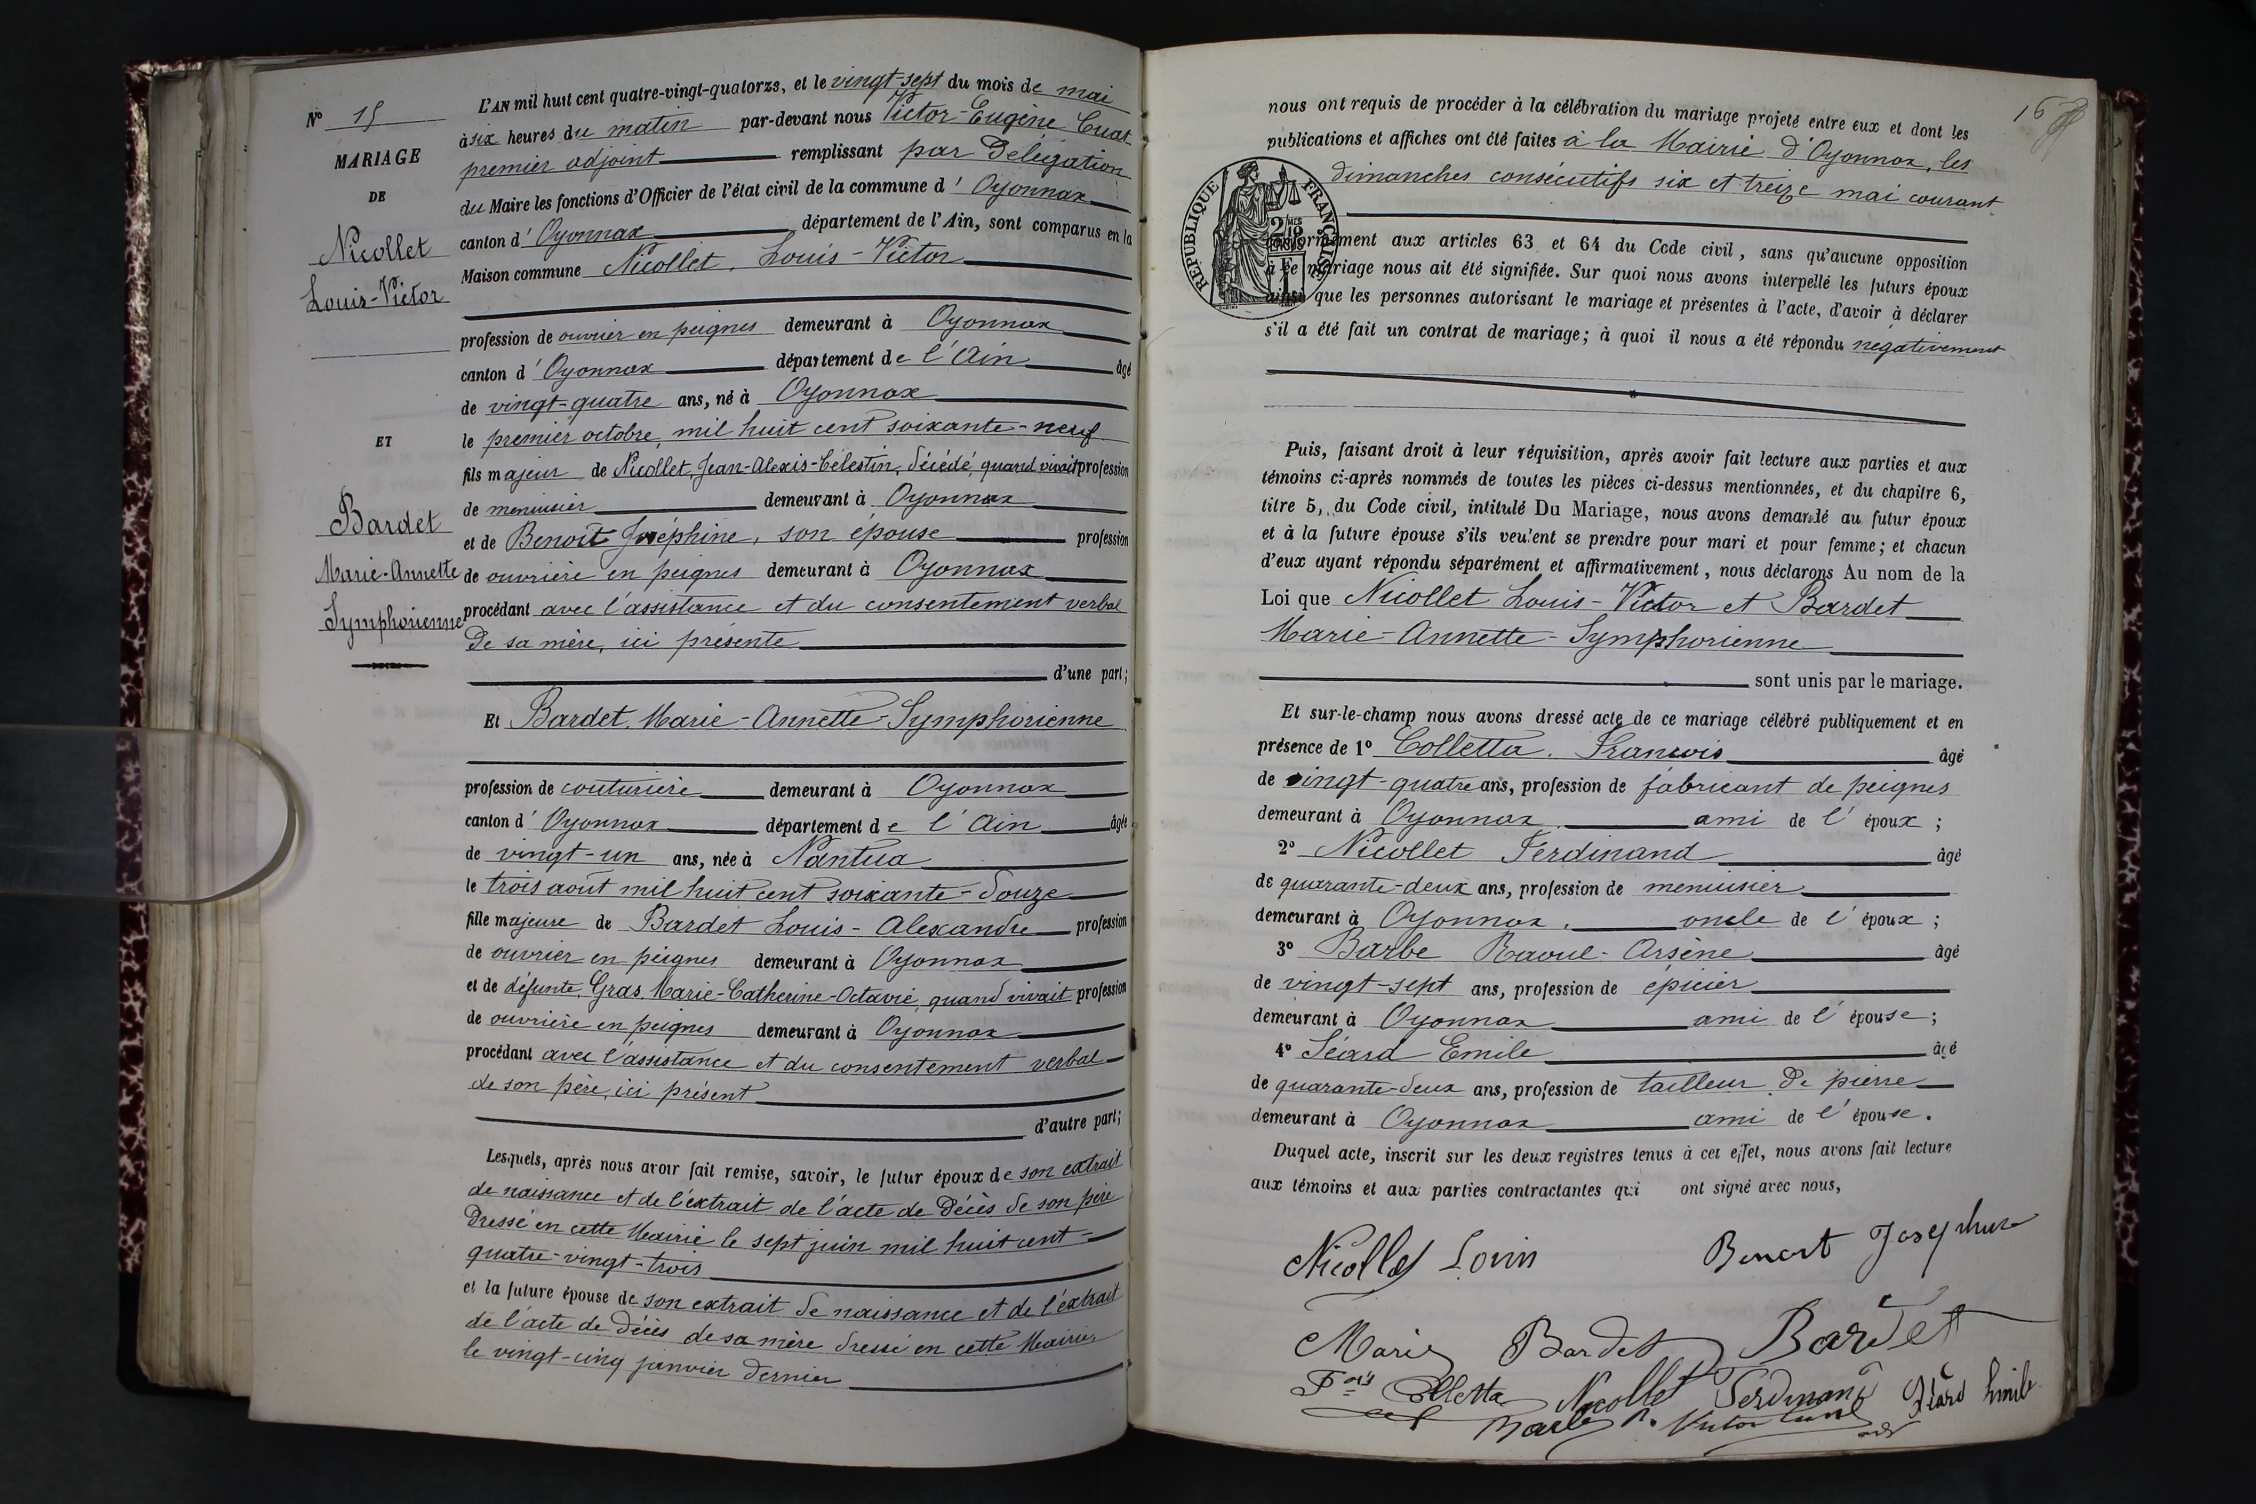 N° 15
MARIAGE
DE
Nicollet
Louis-Victor
ET
Bardet
Marie-Annette
Symphorienne
L'AN mil huit cent quatre-vingt-quatorze, et le vingt-sept du mois de mai
à six heures du matin par-devant nous Victor-Eugène Cuat
premier adjoint remplissant par Délégation
du Maire les fonctions d'Officier de l'état civil de la commune d' Oyonnax
canton d' Oyonnax département de l'Ain, sont comparus en la
Maison commune Nicollet, Louis-Victor
profession de ouvrier en peignes demeurant à Oyonnax
canton d' Oyonnax département de l'Ain âgé
de vingt-quatre ans, né à Oyonnax
le premier octobre, mil huit cent soixante-neuf
fils majeur de Nicollet, Jean-Alexis-Célestin, décédé, quand vivait profession
de menuisier demeurant à Oyonnax
et de Benoit Joséphine, son épouse profession
de ouvrière en peignes demeurant à Oyonnax
procédant avec l'assistance et du consentement verbal
de sa mère, ici présente
d'une part;
Et Bardet, Marie-Annette-Symphorienne
profession de couturière demeurant à Oyonnax
canton d' Oyonnax département de l'Ain âgée
de vingt-un ans, née à Nantua
le trois août mil huit cent soixante-douze
fille majeure de Bardet Louis-Alexandre profession
de ouvrier en peignes demeurant à Oyonnax
et de défunte, Gras Marie-Catherine-Octavie, quand vivait profession
de ouvrière en peignes demeurant à Oyonnax
procédant avec l'assistance et du consentement verbal
de son père, ici présent
d'autre part;
Lesquels, après nous avoir fait remise, savoir, le futur époux de son extrait
de naissance et de l'extrait de l'acte de décès de son père
dressé en cette Mairie le sept juin mil huit cent-
quatre-vingt-trois
et la future épouse de son extrait de naissance et de l'extrait
de l'acte de décès de sa mère dressé en cette Mairie
le vingt-cinq janvier dernier
16
nous ont requis de procéder à la célébration du mariage projeté entre eux et dont les
publications et affiches ont été faites à la Mairie d'Oyonnax, les
dimanches consécutifs six et treize mai courant
RÉPUBLIQUE FRANÇAISE
conformément aux articles 63 et 64 du Code civil, sans qu'aucune opposition
à ce mariage nous ait été signifiée. Sur quoi nous avons interpellé les futurs époux
ainsi que les personnes autorisant le mariage et présentes à l'acte, d'avoir à déclarer
s'il a été fait un contrat de mariage; à quoi il nous a été répondu négativement
Puis, faisant droit à leur réquisition, après avoir fait lecture aux parties et aux
témoins ci-après nommés de toutes les pièces ci-dessus mentionnées, et du chapitre 6,
titre 5, du Code civil, intitulé Du Mariage, nous avons demandé au futur époux
et à la future épouse s'ils veulent se prendre pour mari et pour femme; et chacun
d'eux ayant répondu séparément et affirmativement, nous déclarons Au nom de la
Loi que Nicollet Louis-Victor et Bardet
Marie-Annette-Symphorienne
sont unis par le mariage.
Et sur-le-champ nous avons dressé acte de ce mariage célébré publiquement et en
présence de 1° Colletta, François âgé
de vingt-quatre ans, profession de fabricant de peignes
demeurant à Oyonnax, ami de l'époux;
2° Nicollet Ferdinand âgé
de quarante-deux ans, profession de menuisier
demeurant à Oyonnax, oncle de l'époux;
3° Barbe Raoul-Arsène âgé
de vingt-sept ans, profession de épicier
demeurant à Oyonnax ami de l'épouse;
4° Séard Emile âgé
de quarante-deux ans, profession de tailleur de pierre
demeurant à Oyonnax ami de l'épouse.
Duquel acte, inscrit sur les deux registres tenus à cet effet, nous avons fait lecture
aux témoins et aux parties contractantes qui ont signé avec nous,
Nicollet Louis Benoit Josephine
Marie Bardet Bardet
Fois Colletta Nicollet Ferdinand Séard Emile
Barbe R.